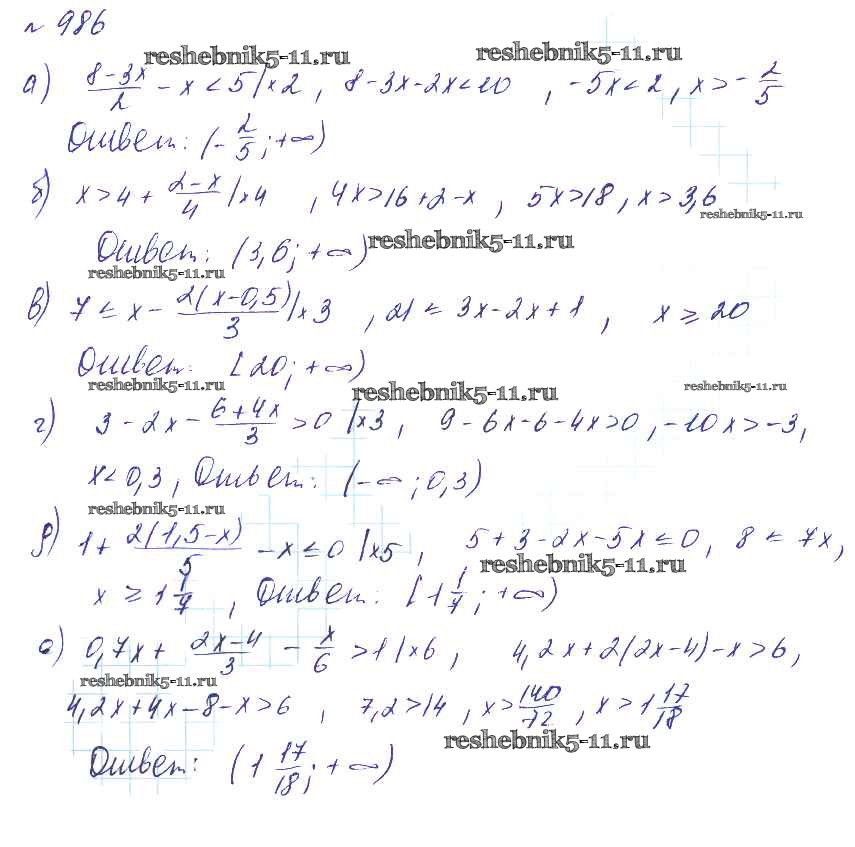 № 986
reshebnik5-11.ru reshebnik5-11.ru
а) (8-3x)/2 - x < 5 |×2, 8-3x-2x<10, -5x<2, x>-2/5
Ответ: (-2/5; +∞)
б) x>4 + (2-x)/4 |×4, 4x>16+2-x, 5x>18, x>3,6
reshebnik5-11.ru
Ответ: (3,6; +∞) reshebnik5-11.ru
reshebnik5-11.ru
в) 7 ≤ x - 2(x-0,5)/3 |×3, 21 ≤ 3x-2x+1, x ≥ 20
Ответ: [20; +∞)
reshebnik5-11.ru reshebnik5-11.ru reshebnik5-11.ru
г) 3-2x - (6+4x)/3 >0 |×3, 9-6x-6-4x>0, -10x>-3,
x<0,3, Ответ: (-∞; 0,3)
reshebnik5-11.ru
д) 1+ 2(1,5-x)/5 - x ≤ 0 |×5, 5+3-2x-5x ≤ 0, 8 ≤ 7x,
reshebnik5-11.ru
x ≥ 1 1/7, Ответ: [1 1/7; +∞)
е) 0,7x + (2x-4)/3 - x/6 >1 |×6, 4,2x+2(2x-4)-x>6,
reshebnik5-11.ru
4,2x+4x-8-x>6, 7,2>14, x>140/72, x>1 17/18
reshebnik5-11.ru
Ответ: (1 17/18; +∞)